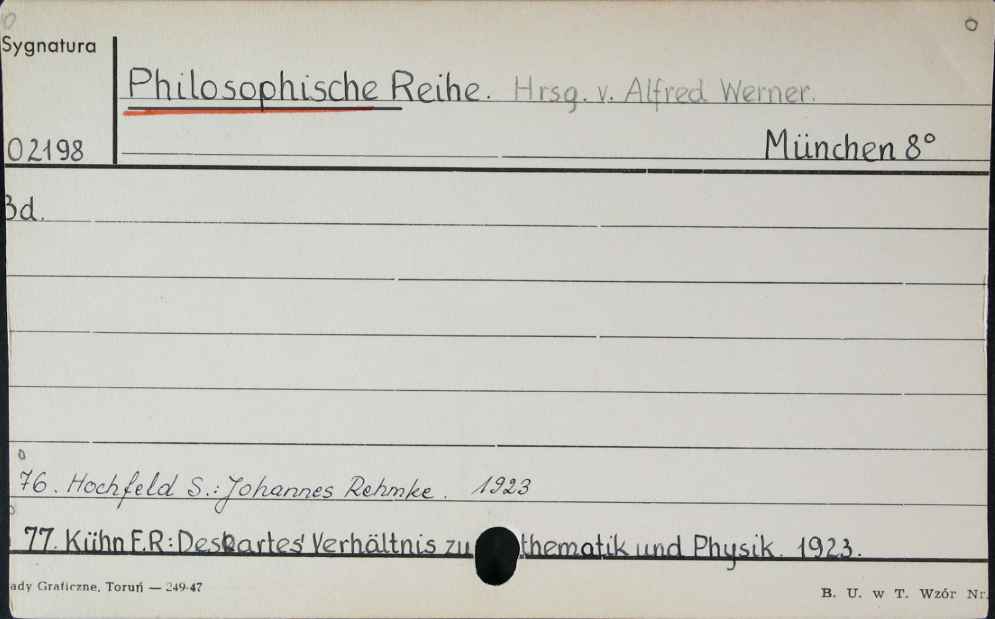 Sygnatura
Philosophische Reihe. Hrsg. v. Alfred Werner.
02198
München 8°
Bd.
76. Hochfeld S.: Johannes Rehmke. 1923
77. Kühn F.R: Deskartes' Verhältnis zu thematik und Physik. 1923.
ady Graficzne, Toruń — 249-47
B. U. w T. Wzór Nr.